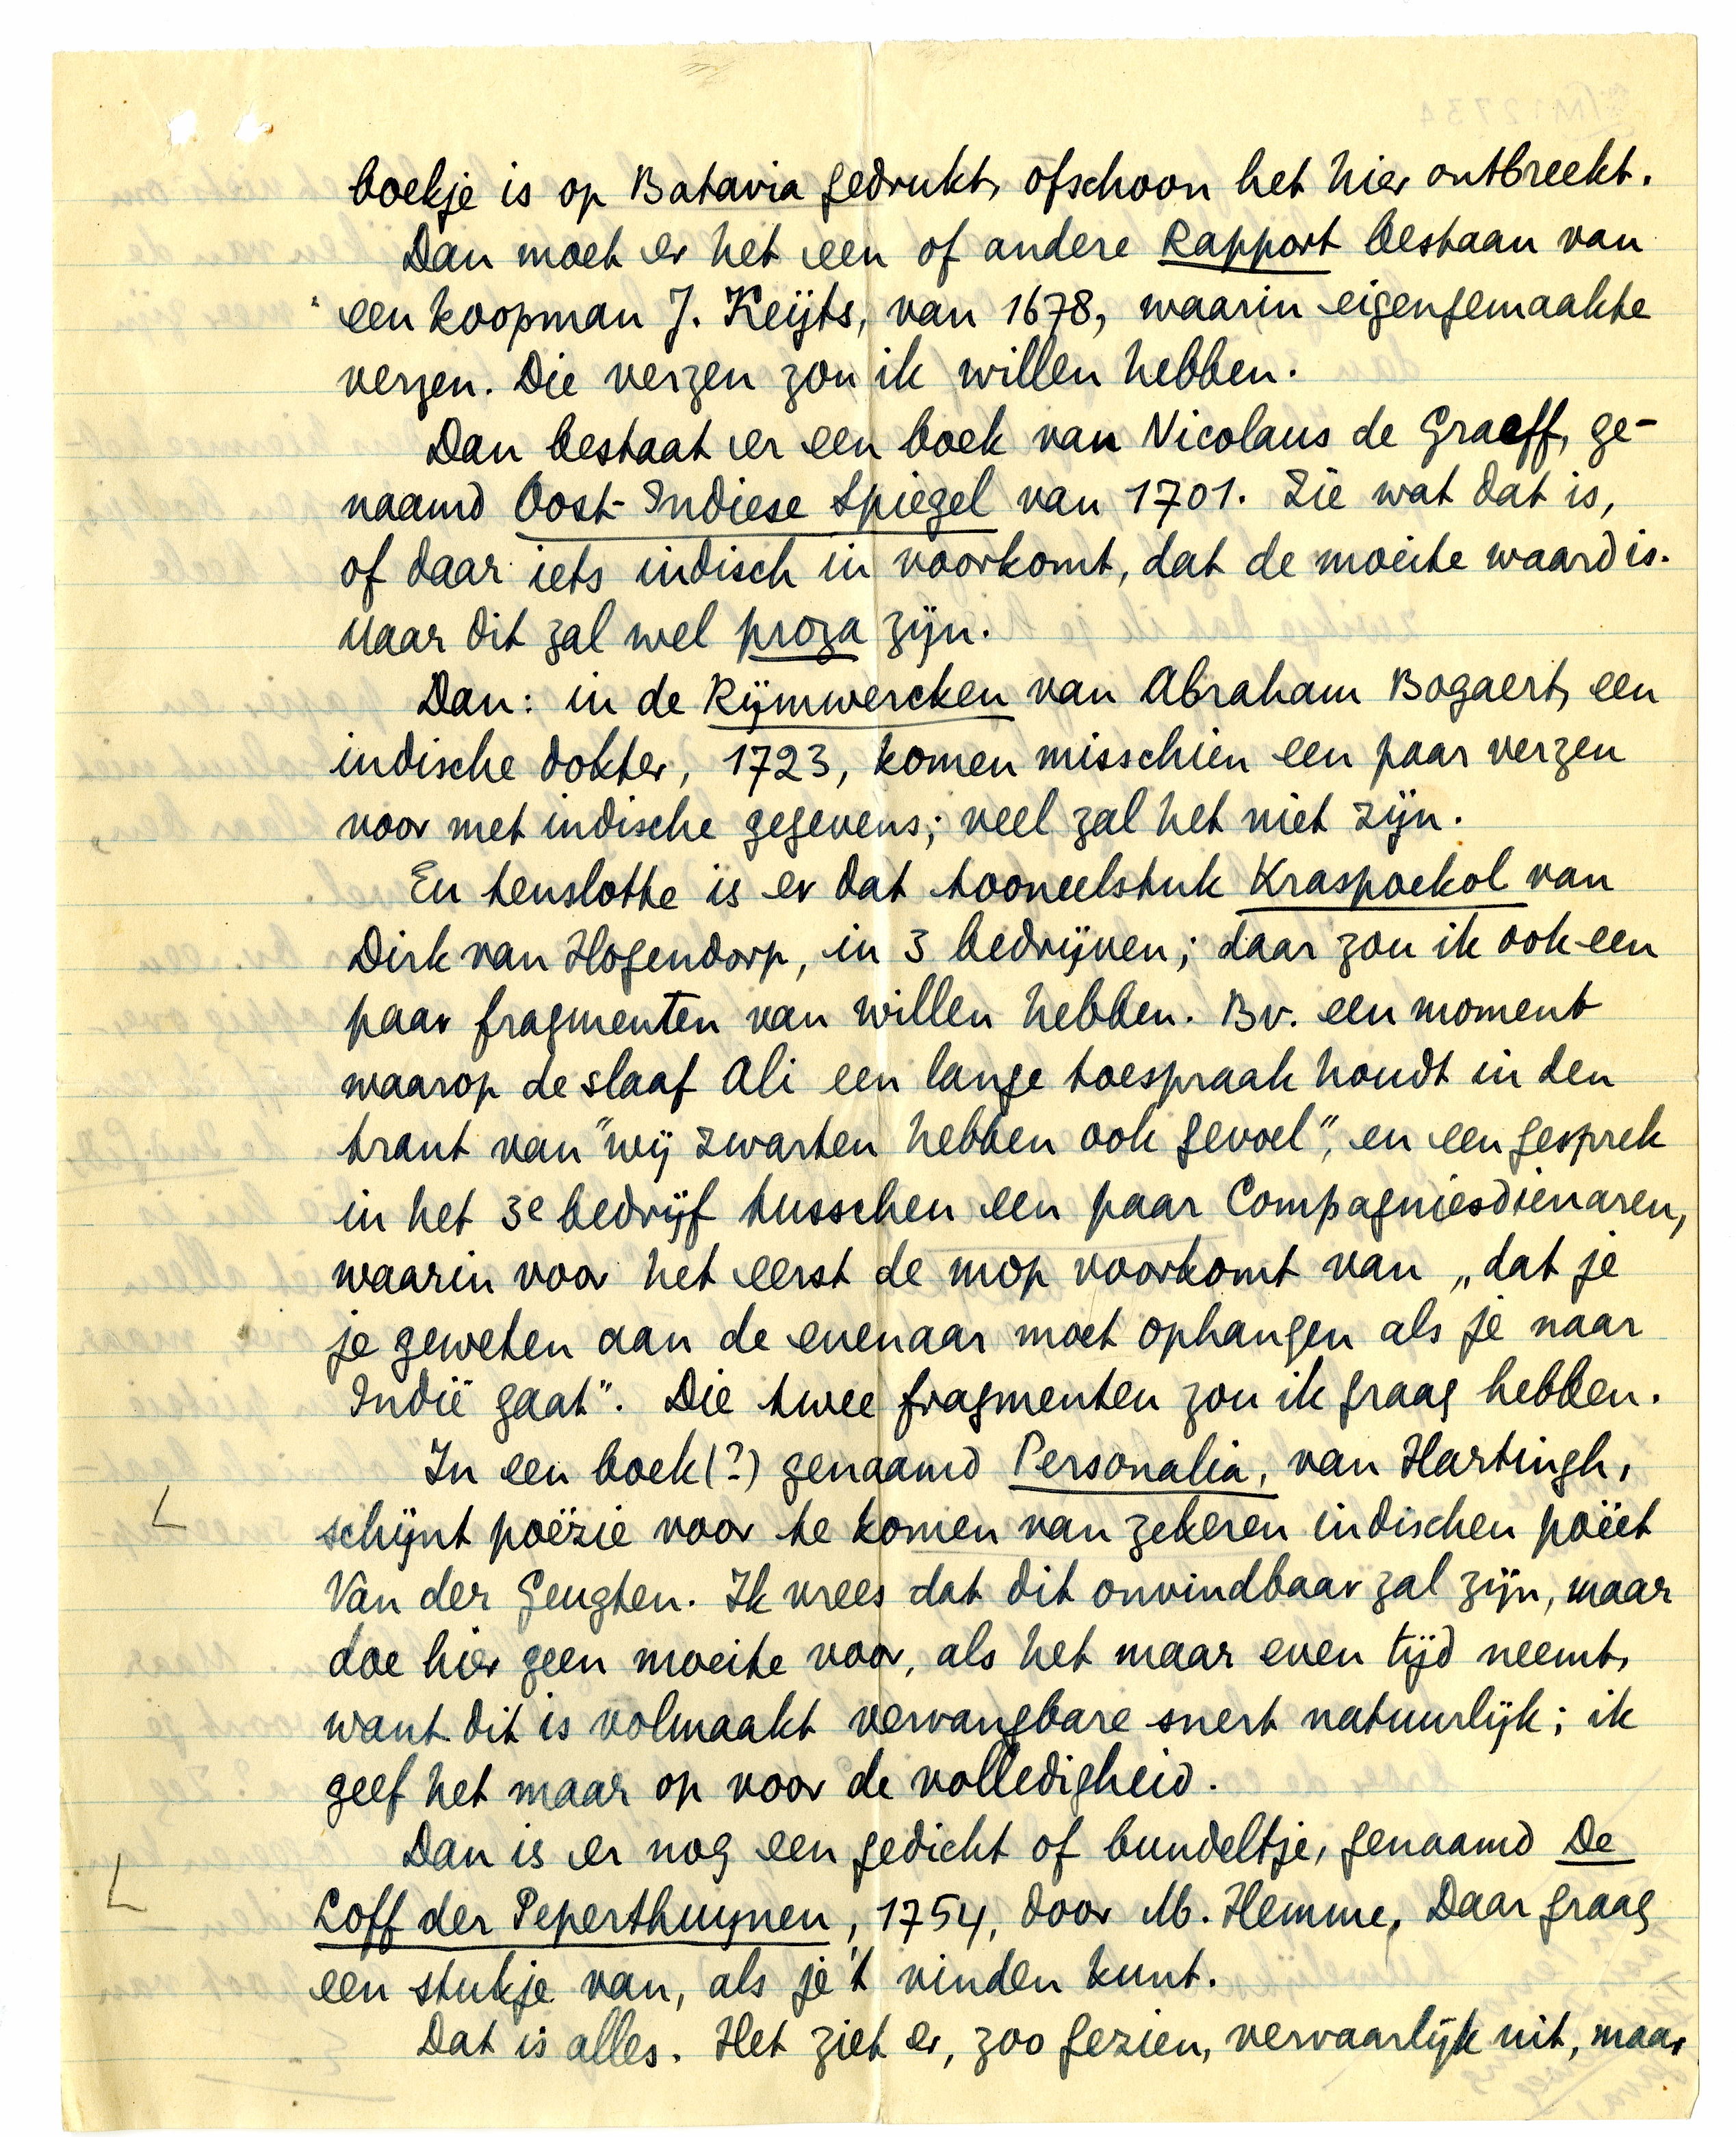 boekje is op Batavia gedrukt, ofschoon het hier ontbreekt.
Dan moet er het een of andere Rapport bestaan van
een koopman J. Keijts, van 1678, waarin eigengemaakte
verzen. Die verzen zou ik willen hebben.
Dan bestaat er een boek van Nicolaus de Graeff, ge-
naamd Oost-Indiese Spiegel van 1701. Zie wat dat is,
of daar iets indisch in voorkomt, dat de moeite waard is.
Maar dit zal wel proza zijn.
Dan: in de Rijmwercken van Abraham Bogaert, een
indische dokter, 1723, komen misschien een paar verzen
voor met indische gegevens; veel zal het niet zijn.
En tenslotte is er dat tooneelstuk Kraspoekol van
Dirk van Hogendorp, in 3 bedrijven; daar zou ik ook een
paar fragmenten van willen hebben. Bv. een moment
waarop de slaaf Ali een lange toespraak houdt in den
trant van "wij zwarten hebben ook gevoel", en een gesprek
in het 3e bedrijf tusschen een paar Compagniesdienaren,
waarin voor het eerst de mop voorkomt van „dat je
je geweten aan de evenaar moet ophangen als je naar
Indië gaat". Die twee fragmenten zou ik graag hebben.
In een boek(?) genaamd Personalia, van Hartingh,
schijnt poëzie voor te komen van zekeren indischen poëet
Van der Geugten. Ik vrees dat dit onvindbaar zal zijn, maar
doe hier geen moeite voor, als het maar even tijd neemt,
want dit is volmaakt vervangbare snert natuurlijk; ik
geef het maar op voor de volledigheid.
Dan is er nog een gedicht of bundeltje, genaamd De
Loff der Peperthuynen, 1754, door M. Hemme, Daar graag
een stukje van, als je 't vinden kunt.
Dat is alles. Het ziet er, zoo gezien, vervaarlijk uit, maar